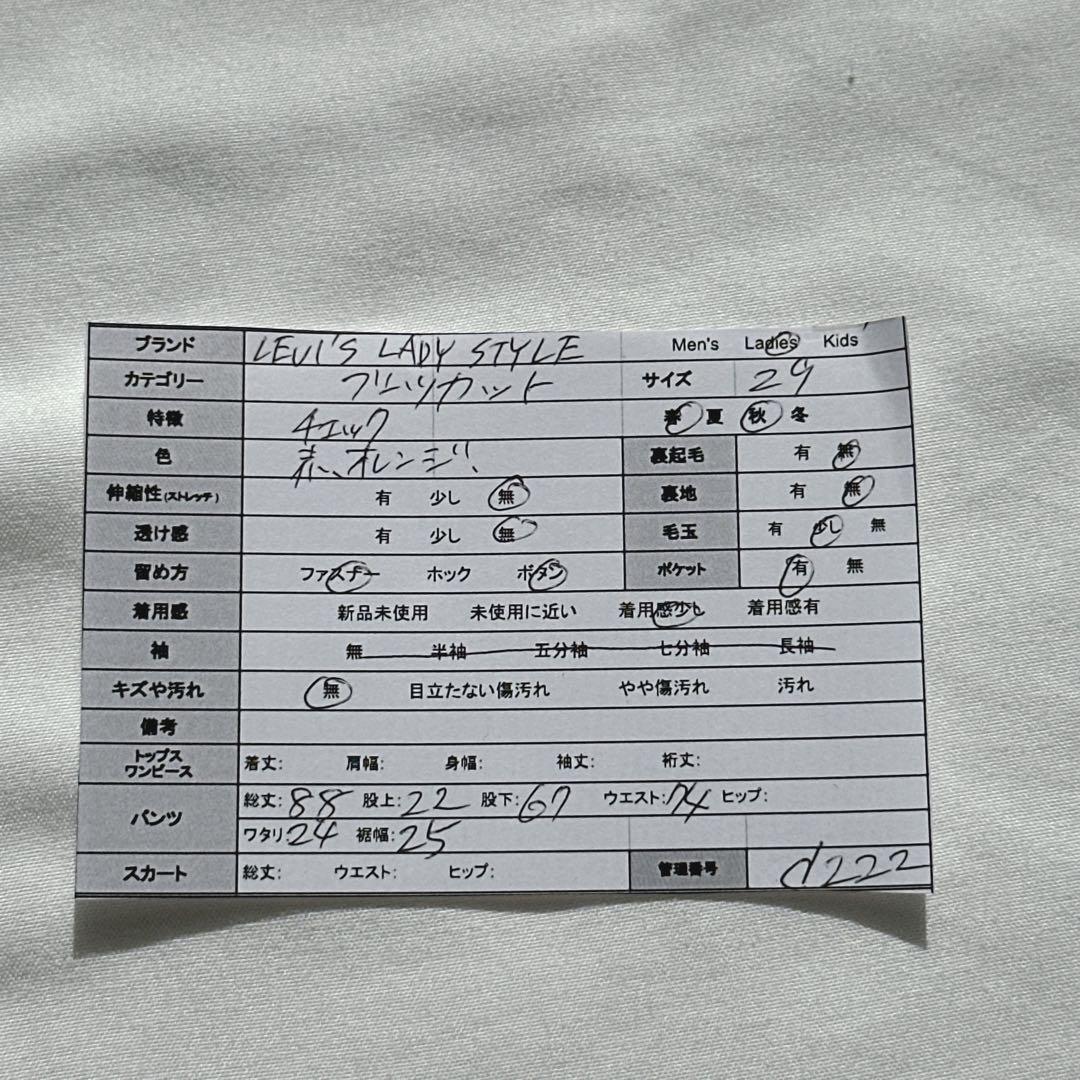 ブランド LEVI'S LADY STYLE Men's Ladies Kids
カテゴリー ブーツカット サイズ 29
特徴 チェック 春 夏 秋 冬
色 赤、オレンジ、 裏起毛 有 無
伸縮性(ストレッチ) 有 少し 無 裏地 有 無
透け感 有 少し 無 毛玉 有 少し 無
留め方 ファスナー ホック ボタン ポケット 有 無
着用感 新品未使用 未使用に近い 着用感少し 着用感有
袖 無 半袖 五分袖 七分袖 長袖
キズや汚れ 無 目立たない傷汚れ やや傷汚れ 汚れ
備考
トップス
ワンピース 着丈: 肩幅: 身幅: 袖丈: 裄丈:
パンツ 総丈:88 股上:22 股下:67 ウエスト:74 ヒップ:
ワタリ24 裾幅:25
スカート 総丈: ウエスト: ヒップ: 管理番号 d222